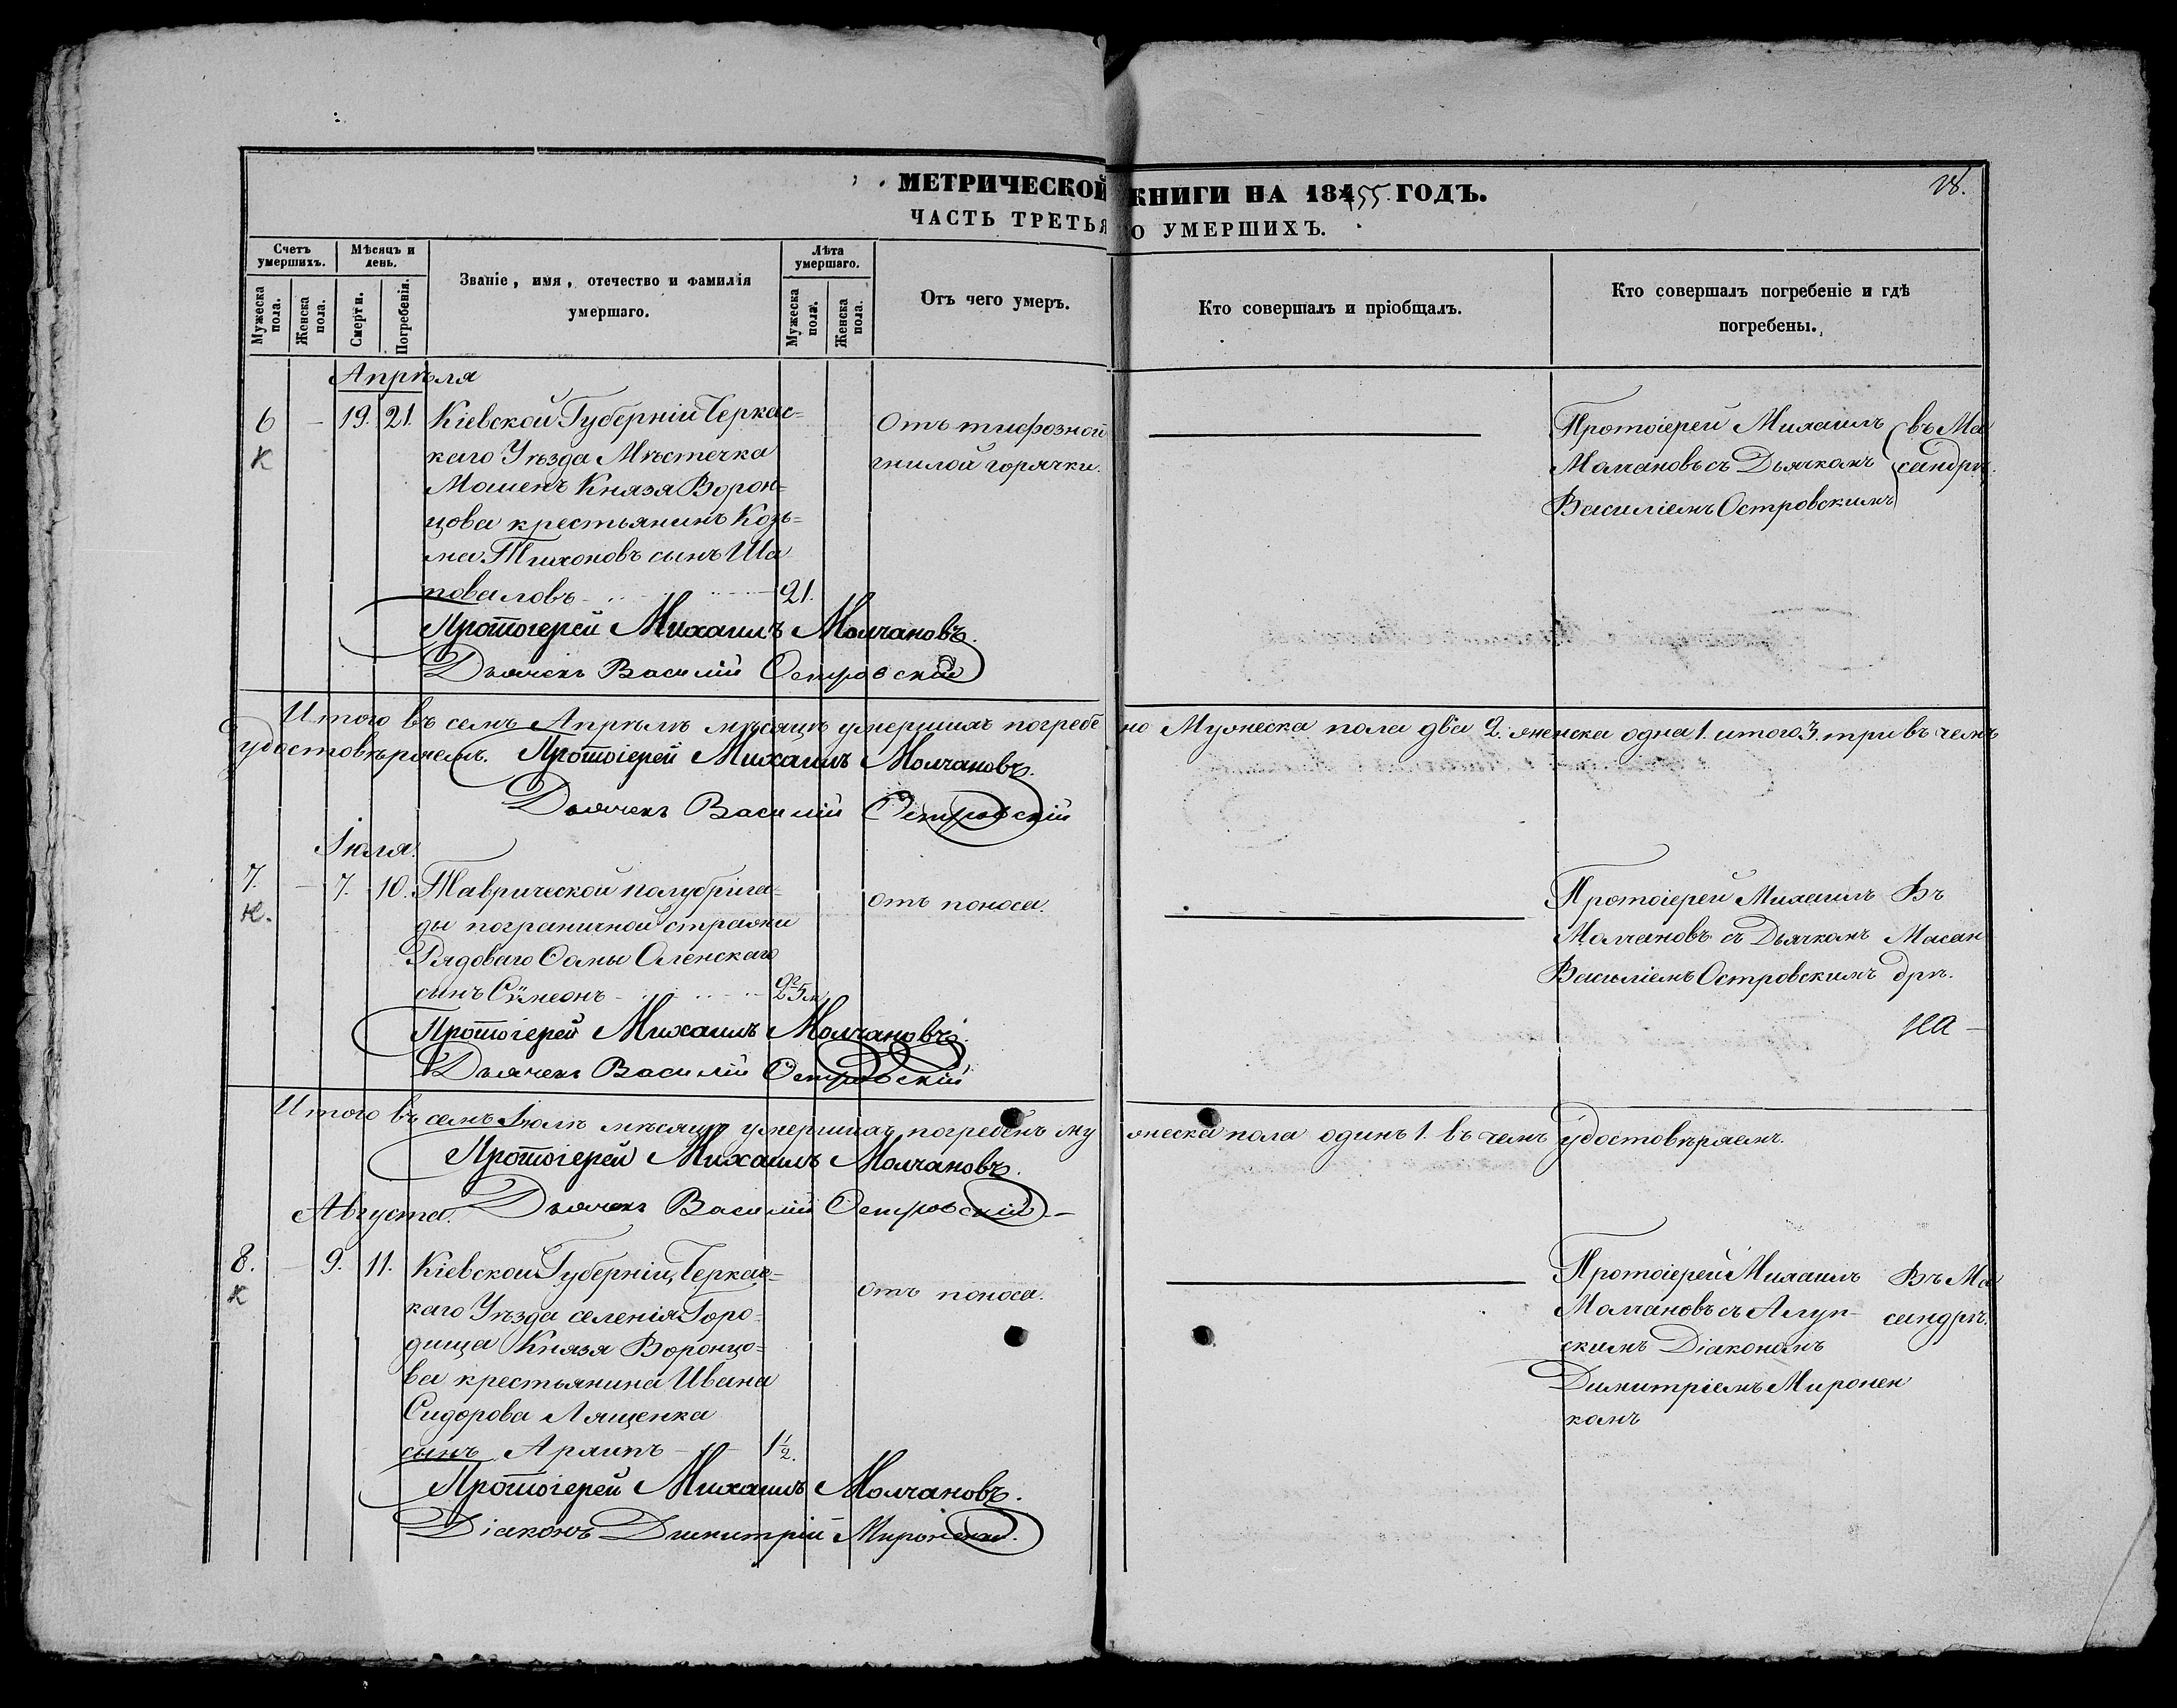 МЕТРИЧЕСКОЙ КНИГИ НА 1855 ГОДЪ.
28.
ЧАСТЬ ТРЕТЬЯ О УМЕРШИХЪ.
Счетъ умершихъ.
Мужеска пола.
Женска пола.
Мѣсяцъ и день.
Смерти.
Погребенія.
Званіе, имя, отечество и фамилія умершаго.
Лѣта умершаго.
Мужеска пола.
Женска пола.
Отъ чего умеръ.
Кто совершалъ и пріобщалъ.
Кто совершалъ погребеніе и гдѣ погребены.
Апрѣля
6 – 19. 21. Кіевской Губерніи Черкас=
К
каго Уѣзда Мѣстечка
Мошенъ Князя Ворон=
цова крестьянинъ Козь=
ма Тихоновъ сынъ Ша
поваловъ 21.
Отъ тифозной
гнилой горячки.
Протоіерей Михаилъ
Молчановъ съ Дьячкомъ
Василіемъ Островскимъ
въ Ма
сандрѣ.
Протоіерей Михаилъ Молчановъ.
Дьячекъ Василій Островскій
Итого въ семъ Апрѣлѣ мѣсяцѣ умершихъ погребе но Мужеска пола два 2. женска одна 1. итого 3. три въ чемъ
удостовѣряемъ. Протоіерей Михаилъ Молчановъ.
Дьячекъ Василій Островскій
Іюля.
7. – 7. 10. Таврической полубрига=
К.
ды пограничной стражи
Рядоваго Ѳомы Оленскаго
сынъ Сѵмеонъ 2 5м
отъ поноса.
Протоіерей Михаилъ
Молчановъ съ Дьячкомъ
Василіемъ Островскимъ
Въ
Масан
дрѣ.
Протоіерей Михаилъ Молчановъ.
Дьячекъ Василій Островскій
Итого въ семъ Іюлѣ мѣсяцѣ умершихъ погребенъ му жеска пола одинъ 1. въ чемъ удостовѣряемъ.
Протоіерей Михаилъ Молчановъ.
Дьячекъ Василій Островскій
Августа.
8. – 9. 11. Кіевской Губерніи, Черкас=
К
каго Уѣзда селенія Горо=
дища Князя Воронцо=
ва крестьянина Ивана
Сидорова Лященка
сынъ Архипъ 1½.
отъ поноса.
Протоіерей Михаилъ
Молчановъ съ Алуп-
скимъ Діакономъ
Димитріемъ Миронен
комъ
Въ Ма
сандрѣ.
Протоіерей Михаилъ Молчановъ.
Діаконъ Димитрій Мироненко.